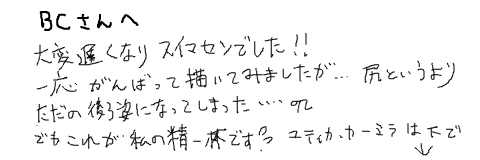 BCさんへ
大変遅くなりスイマセンでした!!
一応がんばって描いてみましたが… 尻というより
ただの後ろ姿になってしまった…‥ orz
でもこれが私の精一杯です? ユティカ・カーミラは下で
↓